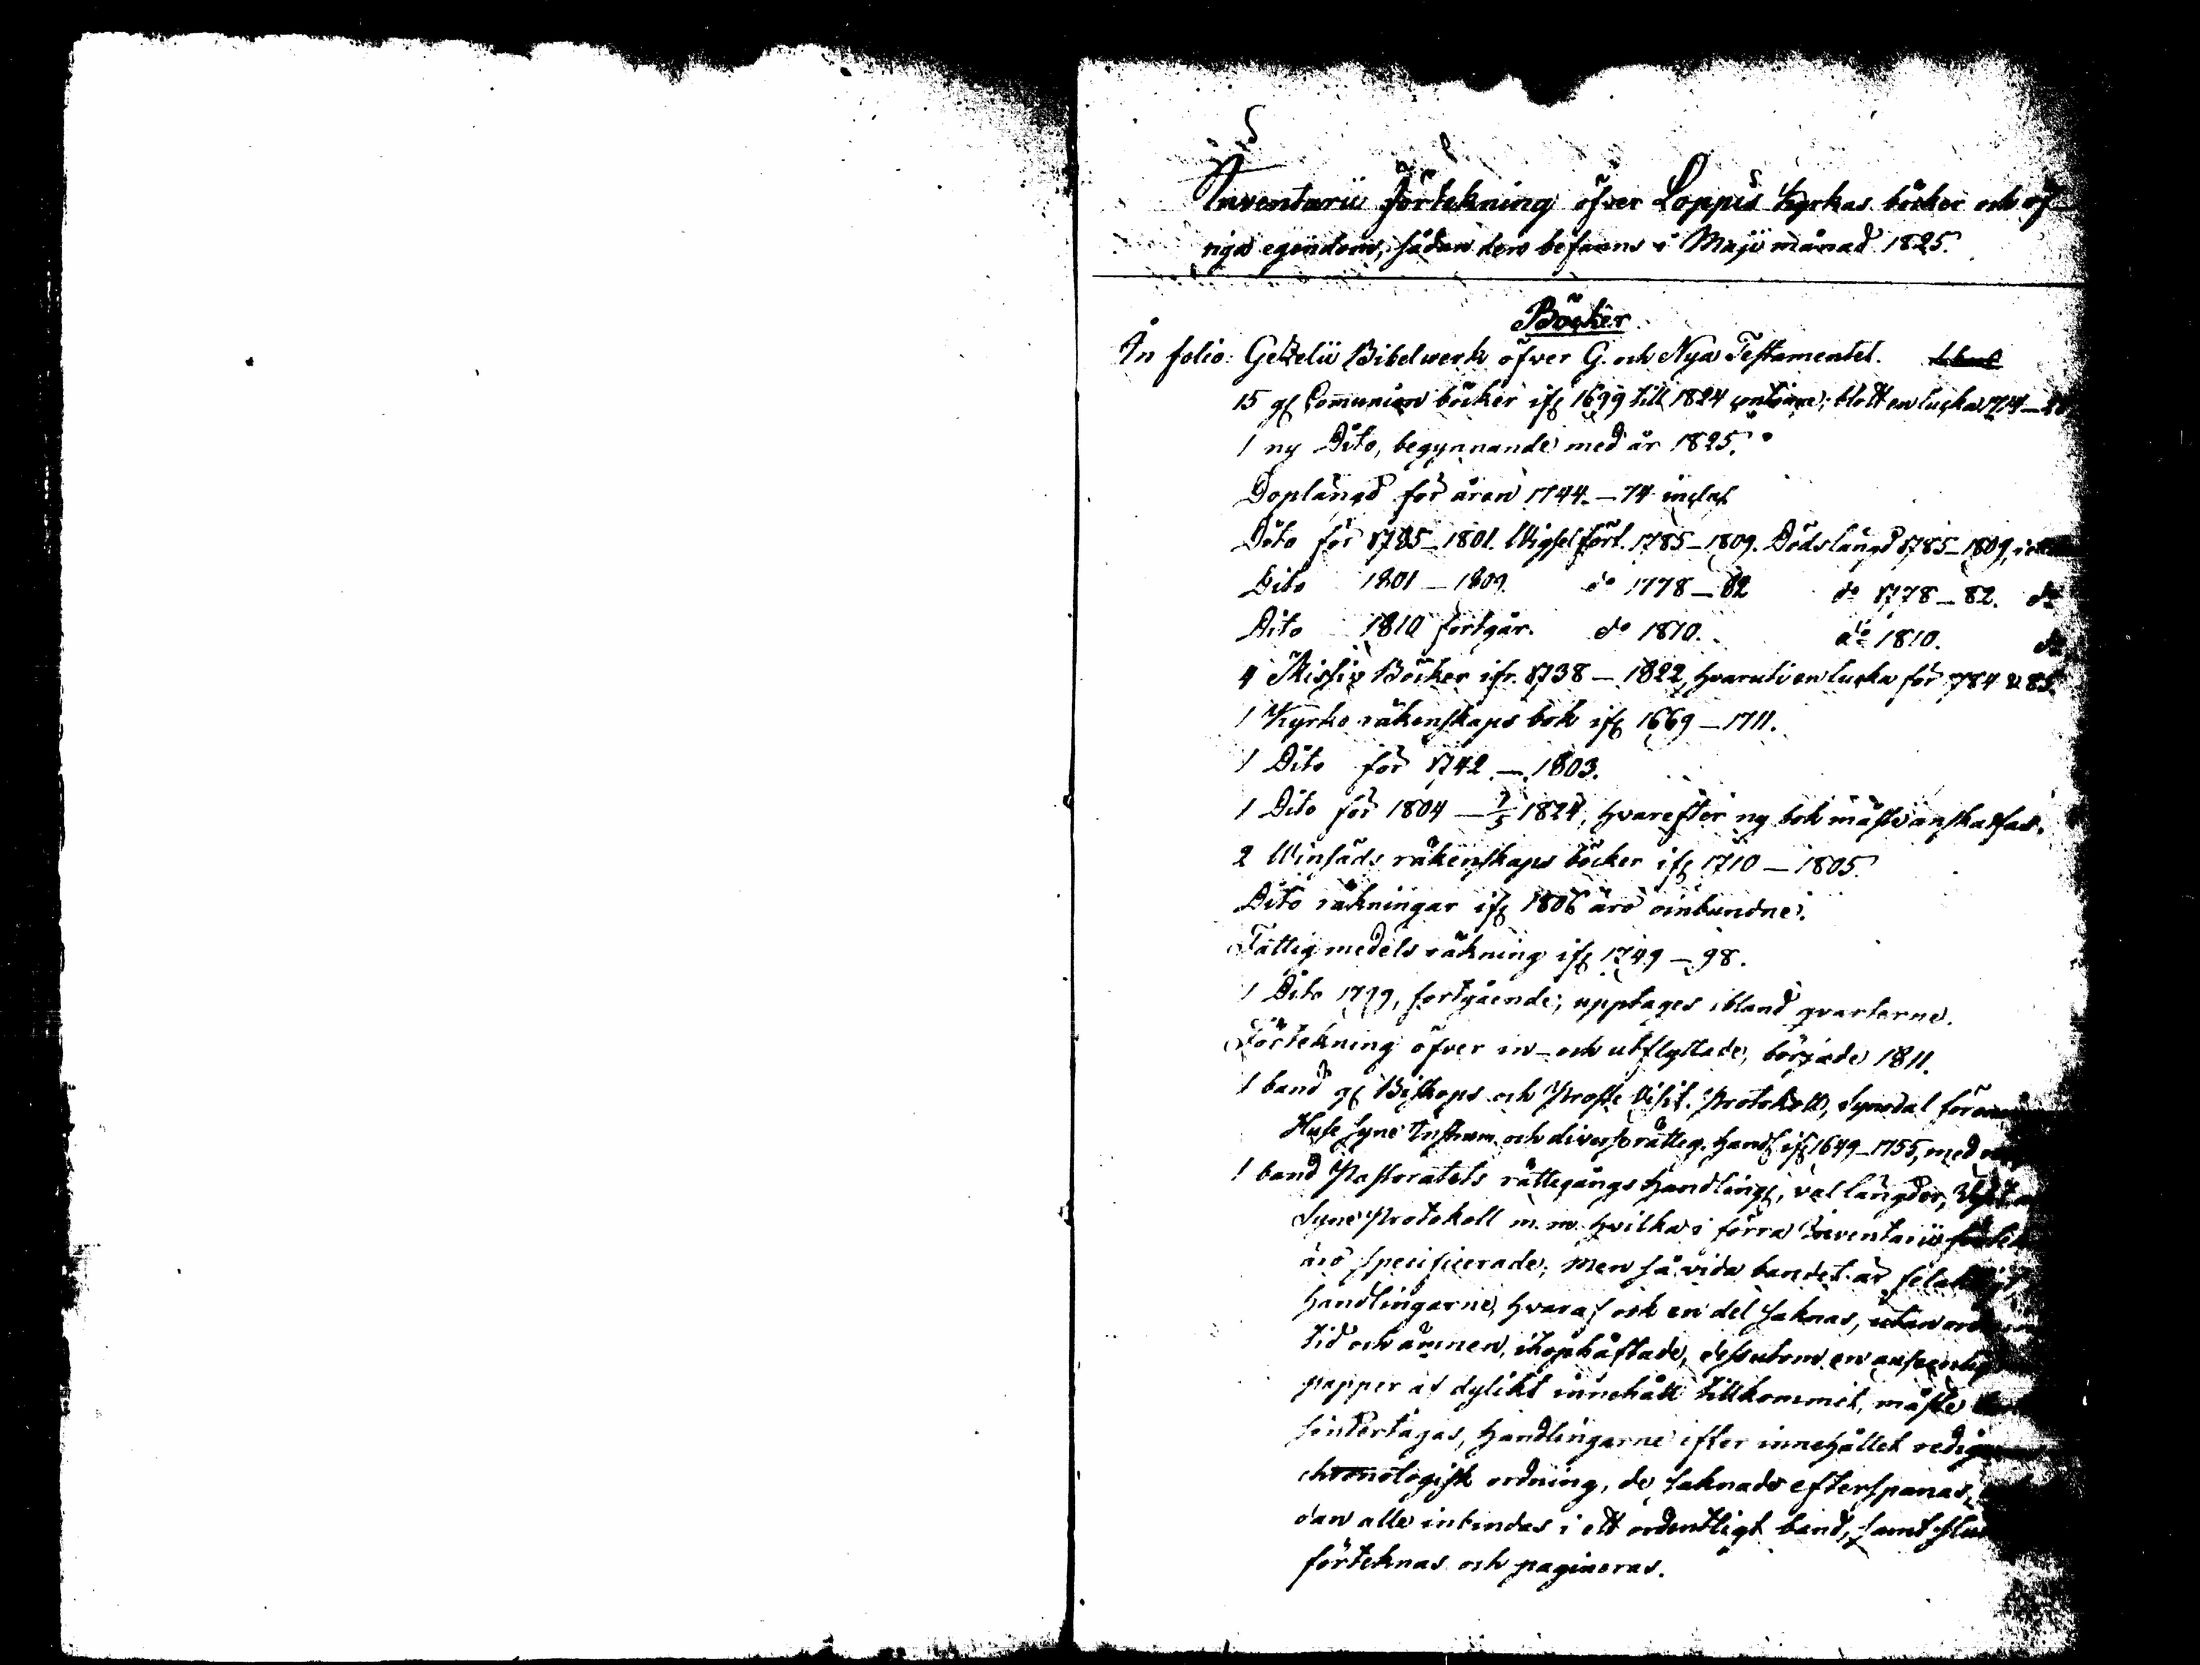 Inventarii Förtekning öfver Loppis Kyrkas böcker och öf-
riga egendom, sådan den befanns i Maji månad 1825.
Böcker
In folio: Gezelii Bibelwerk öfver G. och Nya Testamentet.
15 gl Communion böcker ifr 1699 till 1824 continue; blott en lucka 1714-
1 ny Dito, begynnande med år 1825.
Doplängd för åren 1744-74 inclus
Dito för 1785-1801. Wigsel fört. 1785-1809. Dödslängd 1785-1809,
Dito 1801-1809. do 1778-82 do 1778-82. do
Dito 1810 fortgår. do 1810. do 1810. do
4 Missiv Böcker ifr. 1738-1822, hvaruti en lucka för 1784 & 85.
1 Kyrko räkenskaps bok ifr 1669-1711.
1 Dito för 1742-1803.
1 Dito för 1804-1/5 1824, hvarefter ny bok måste anskaffas.
2 Winsäds räkenskaps böcker ifr 1710-1805.
Dito räkningar ifr 1806 äro oinbundne.
Fattigmedels räkning ifr 1749-98.
1 Dito 1799, fortgående; upptages ibland qvarterne.
Förtekning öfver in- och utflyttade, började 1811.
1 band gl Biskops och Proste Visit. Protokoll, Synodal
Huse Syne Instrum. och diverse rätteg. Handl ifr 1649-1755, med
1 band Pastoratets rättegångs Handlingr, val längder,
Syne Protokoll m. m. hvilka i förra Inventarii
äro specificerade; men så vida bandet är
Handlingarne, hvaraf ock en del saknas, utan
tid och ämnen, ihophäftade, dessutom en
papper af dylikt innehåll tillkommit, måste
sönsertagas, Handlingarne efter innehållet
chronologisk ordning, de saknade efterspanas,
dan alle inbindas i ett ordentligt band, samt
förteknas och pagineras.